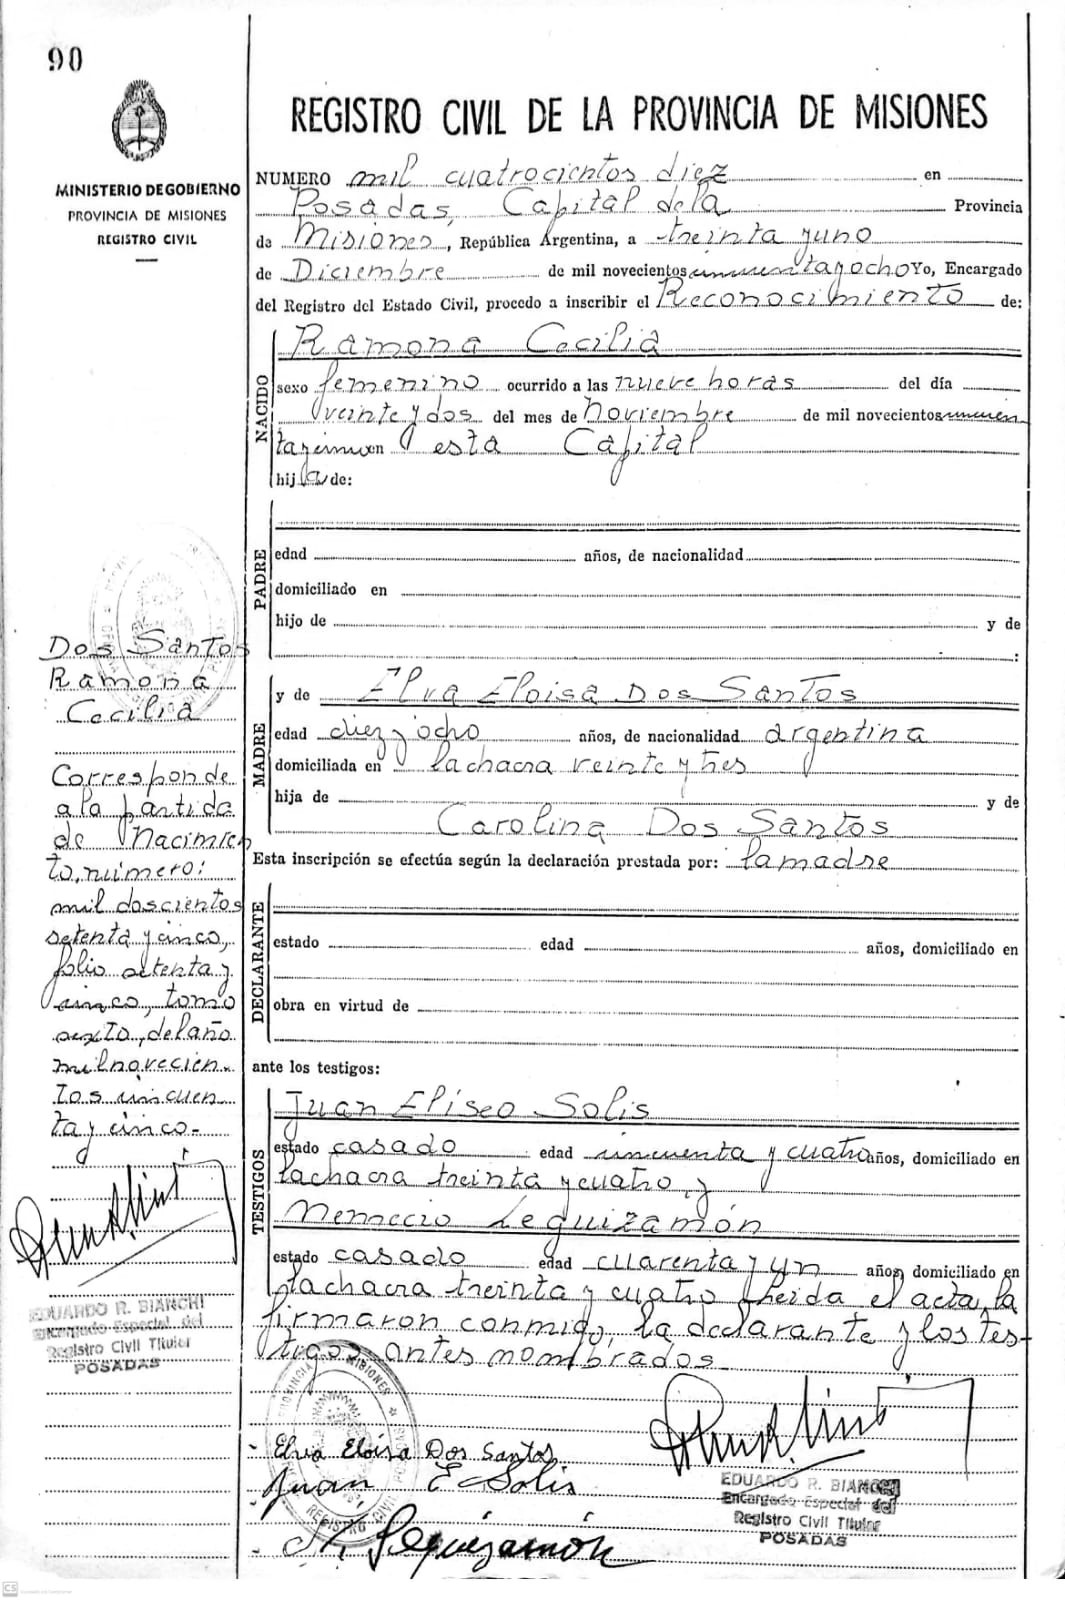 90
MINISTERIO DE GOBIERNO
PROVINCIA DE MISIONES
REGISTRO CIVIL
REGISTRO CIVIL DE LA PROVINCIA DE MISIONES
NUMERO mil cuatrocientos diez en
Posadas, Capital de la Provincia
de Misiones, República Argentina, a treinta y uno
de Diciembre de mil novecientos cincuenta y ocho Yo, Encargado
del Registro del Estado Civil, procedo a inscribir el Reconocimiento de:
NACIDO
Ramona Cecilia
sexo femenino ocurrido a las nueve horas del día
veinte y dos del mes de Noviembre de mil novecientos cincuen
ta y cinco en esta Capital
hija de:
PADRE
edad años, de nacionalidad
domiciliado en
hijo de y de
:
MADRE
y de Elva Eloisa Dos Santos
edad diez y ocho años, de nacionalidad argentina
domiciliada en la chacra veinte y tres
hija de y de
Carolina Dos Santos
Esta inscripción se efectúa según la declaración prestada por: la madre
DECLARANTE
estado edad años, domiciliado en
obra en virtud de
ante los testigos:
TESTIGOS
Juan Eliseo Solis
estado casado edad cincuenta y cuatro años, domiciliado en
la chacra treinta y cuatro, y
Nemecio Leguizamón
estado casado edad cuarenta y un años, domiciliado en
la chacra treinta y cuatro. Leida el acta, la
firmaron conmigo, la declarante y los tes-
tigos antes nombrados
Dos Santos
Ramona
Cecilia
Corresponde
a la partida
de Nacimien
to, número:
mil doscientos
setenta y cinco,
folio setenta y
cinco, tomo
sexto, del año
mil novecien-
tos cincuen
ta y cinco-
EDUARDO R. BIANCHI
Encargado Especial del
Registro Civil Titular
POSADAS
- Elva Eloisa Dos Santos
- Juan E Solis
- Leguizamón
EDUARDO R. BIANCHI
Encargado Especial del
Registro Civil Titular
POSADAS
PROVINCIA DE MISIONES
REGISTRO CIVIL
CS